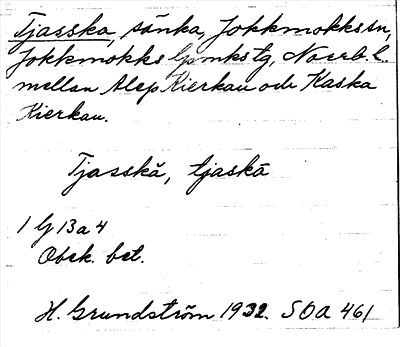 Tjasska, sänka, Jokkmokks sn,
Jokkmokks lpmkstg, Norrb. l.
mellan Alep Kierkau och Kaska
Kierkau.
Tjasskă, tjaskā
1 G 13 a 4
Obek. bet.
H. Grundström 1932. SOA 461